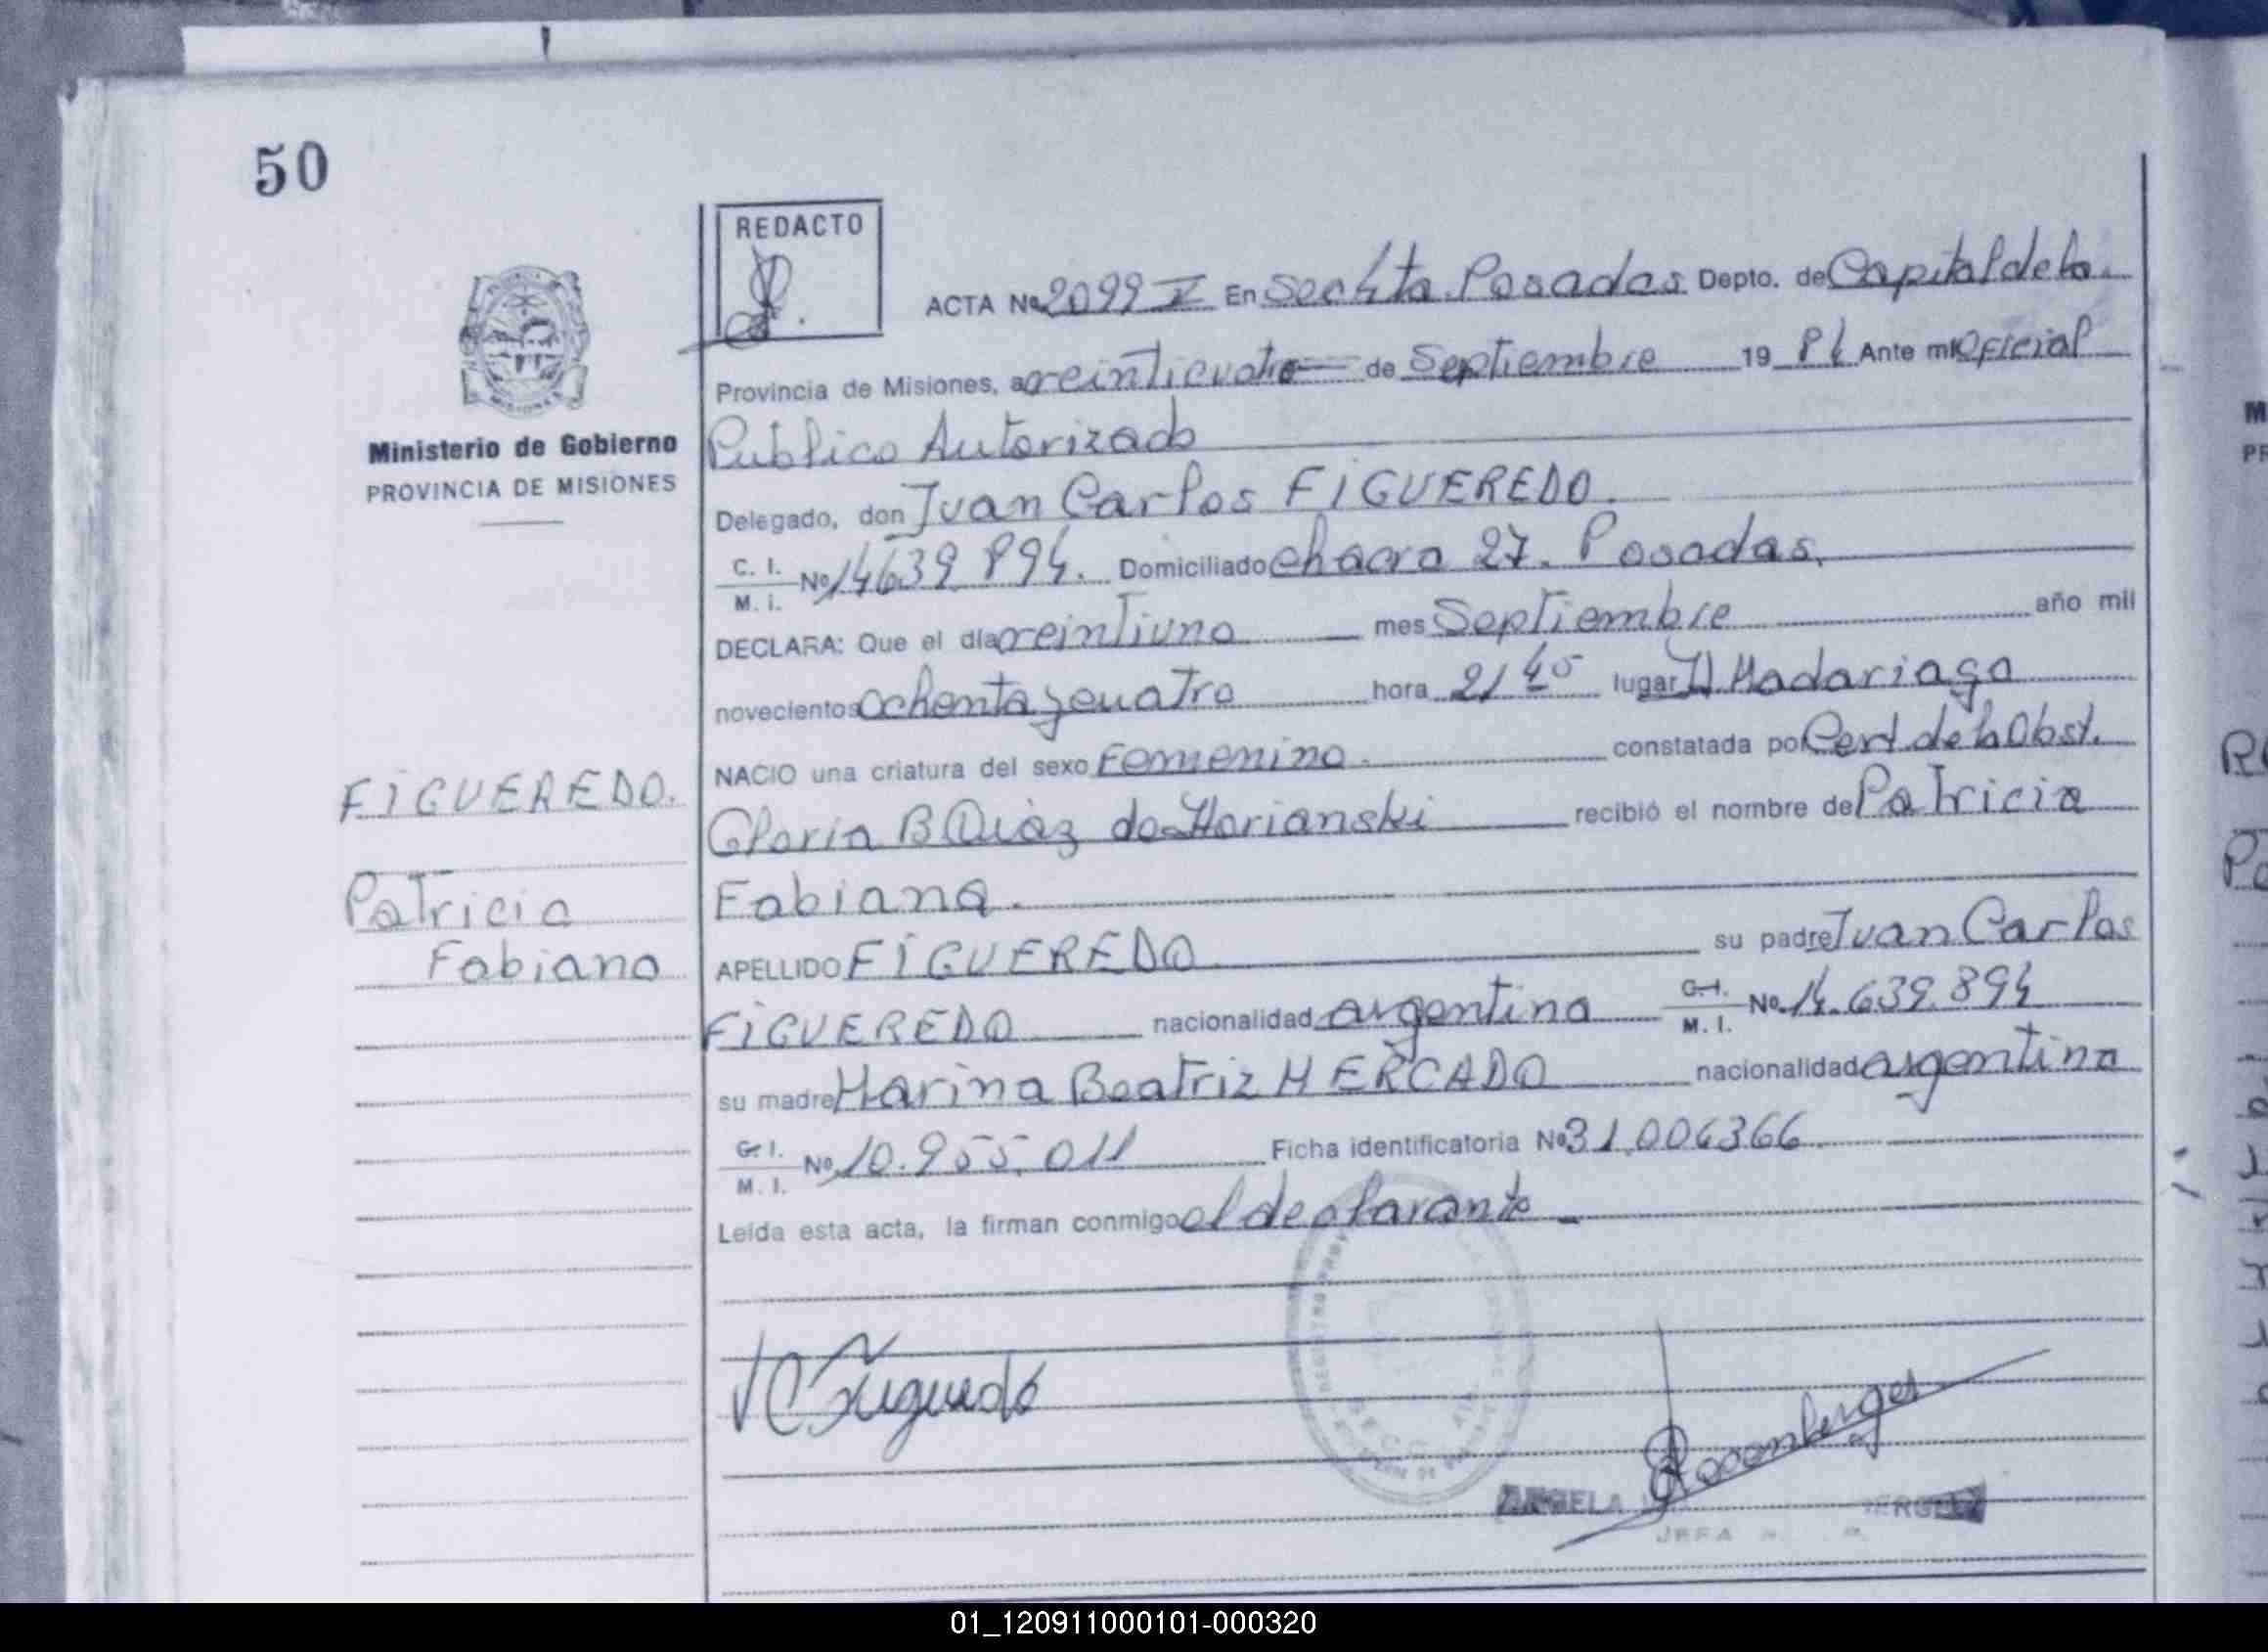 50
REDACTO
ACTA Nº 2099 V En Secc 4ta. Posadas Depto. de Capital de la
Provincia de Misiones, a veinticuatro de Septiembre 19 84 Ante mi Oficial
Publico Autorizado
Ministerio de Gobierno
PROVINCIA DE MISIONES
Delegado, don Juan Carlos FIGUEREDO.
C. I.
M. I. Nº 14639.894. Domiciliado chacra 27. Posadas.
DECLARA: Que el día veintiuno mes Septiembre año mil
novecientos ochenta y cuatro hora 21 45 lugar H. Madariaga
NACIO una criatura del sexo Femenino. constatada por Cert. de la Obst.
FIGUEREDO.
Gloria B Diaz de Morianski recibió el nombre de Patricia
Patricia
Fabiana
Fabiana.
APELLIDO FIGUEREDO su padre Juan Carlos
FIGUEREDO nacionalidad argentina C. I.
M. I. Nº 14.639.894
su madre Marina Beatriz MERCADO nacionalidad argentina
C. I.
M. I. Nº 10.955.011 Ficha identificatoria Nº 31.006366
Leída esta acta, la firman conmigo el declarante
JC Figueredo
Rosemberger
ANGELA
JEFA
01_120911000101-000320